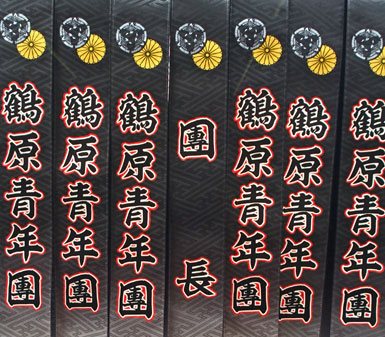 鶴原青年團
鶴原青年團
鶴原青年團
團長
鶴原青年團
鶴原青年團
鶴原青年團